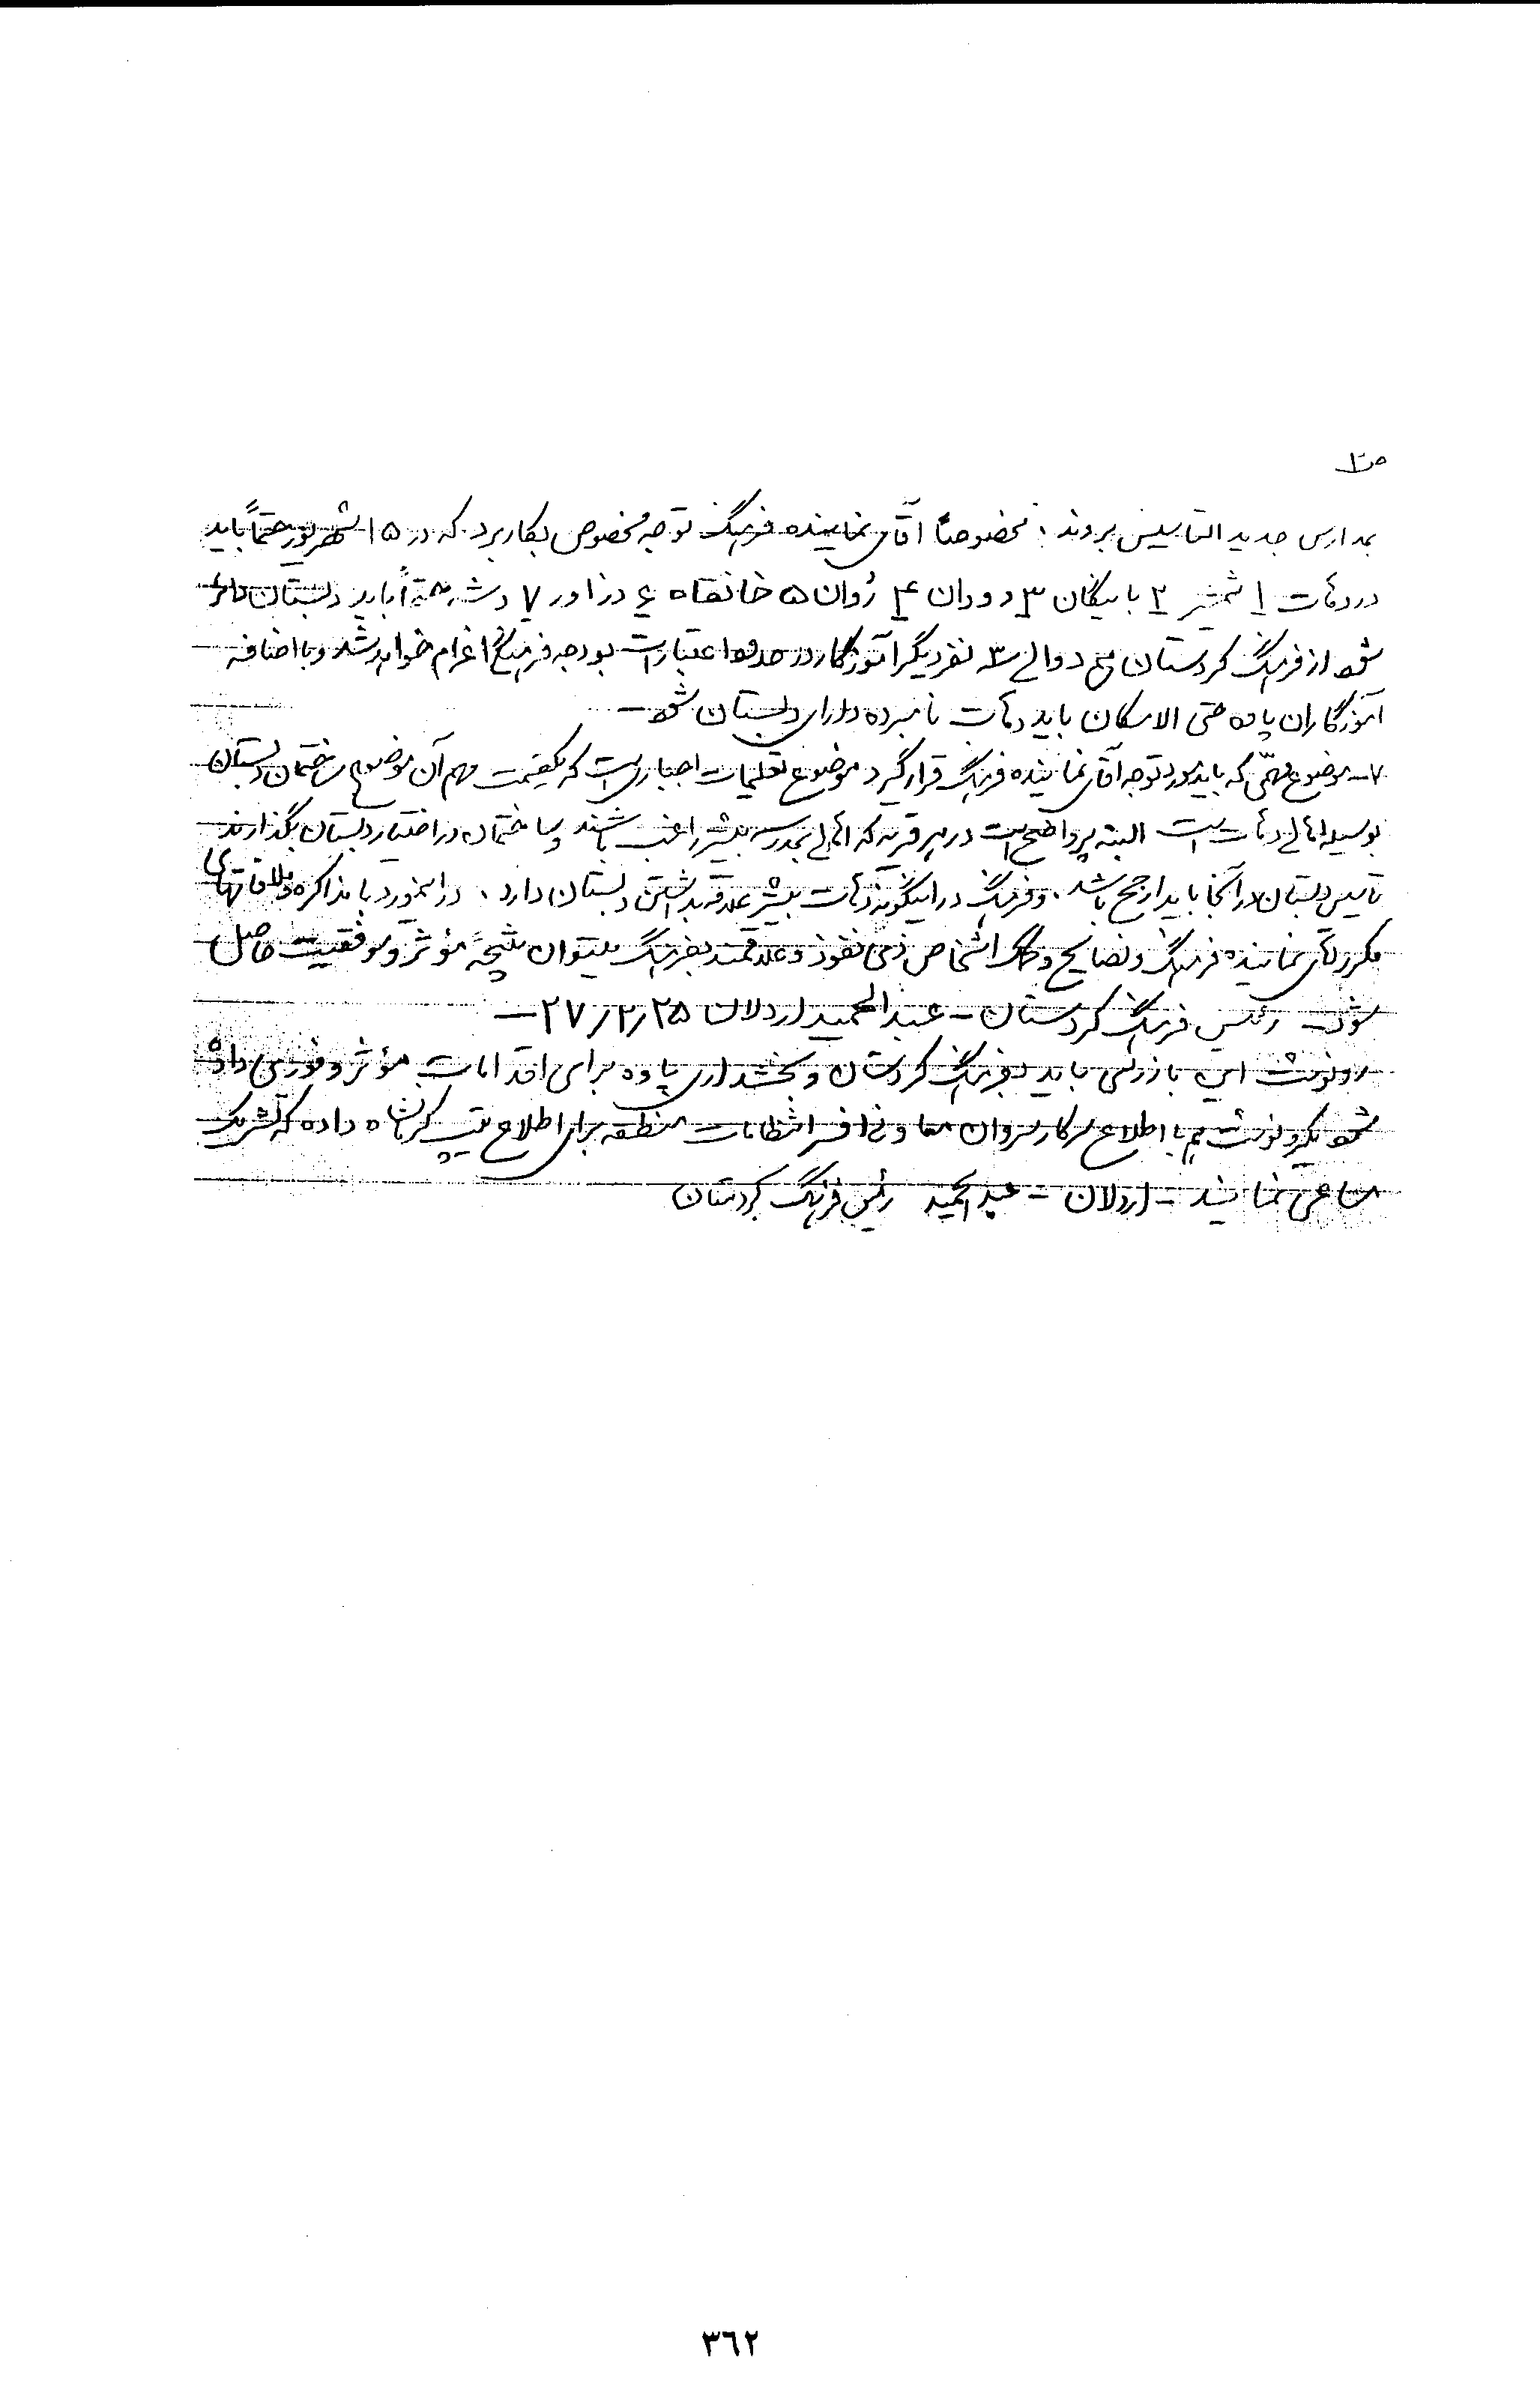 بمدارس جدید التأسیس بروند. مخصوصاً آقای نماینده فرهنگ توجه مخصوص بکار برد که در ۱۵ شهریور حتماً باید
در دهات ۱ شمشیر ۲ بایگان ۳ دودان ۴ زوان ۵ خانقاه ۶ دزاور ۷ دشه حتماً باید دبستان دائر
شود از فرهنگ کردستان هم دو الی ۳ نفر دیگر آموزگار در حدود اعتبارات بودجه فرهنگ اعزام خواهد شد و با اضافه
آموزگاران پاوه حتی الامکان باید دهات نامبرده دارای دبستان شود –
۷– موضوع مهمی که باید مورد توجه آقای نماینده فرهنگ قرار گیرد موضوع تعلیمات اجباری است که یکقسمت مهم آن موضوع ساختمان دبستان
بوسیله اهالی دهات است البته پر واضح است در هر قریه که اهالی بمدرسه بیشتر راغب باشند و ساختمان در اختیار دبستان بگذارند
تأسیس دبستان در آنجا باید ارجح باشد. و فرهنگ در اینگونه دهات بیشتر علاقه بداشتن دبستان دارد. در اینمورد با مذاکره و ملاقاتهای
مکرر آقای نماینده فرهنگ و نصایح و کمک اشخاص ذی نفوذ و علاقمند بفرهنگ میتوان نتیجهٔ مؤثر و موفقیت حاصل
شود – رئیس فرهنگ کردستان – عبدالحمید اردلان ۲۷/۲/۲۵ –
رونوشت این بازرسی باید بفرهنگ کردستان و بخشداری پاوه برای اقدامات مؤثر و فوری داده
شود یکرونوشت هم با اطلاع سرکار سروان معاونی افسر انتظامات منطقه برای اطلاع تیپ کرمانشاه داده که تشریک
مساعی نمایند – اردلان – عبدالحمید رئیس فرهنگ کردستان
٣٦٢